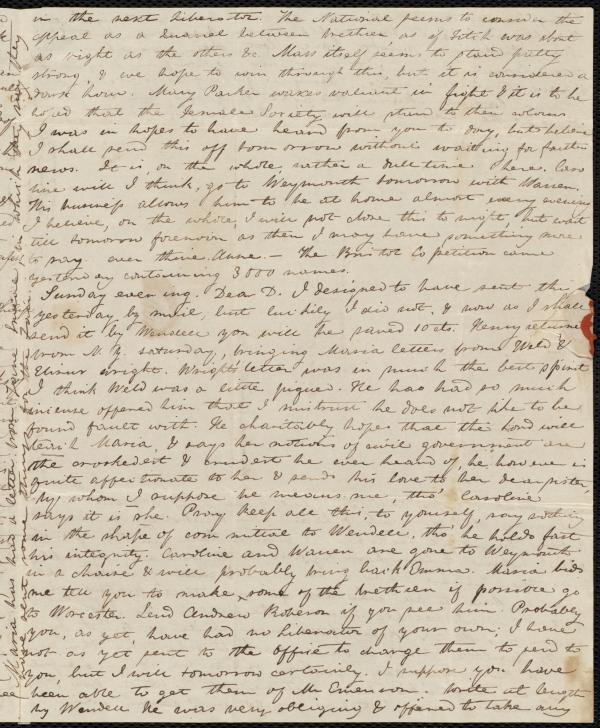 in the next Liberator. The National seems to consider the
appeal as a quarrel between brethren as if Fitch was about
as right as the others &c. Mass itself seems to stand pretty
strong, & we hope to win through this, but it is considered a
dark hour. Mary Parker waxes valiant in fight & it is to be
hoped that the Female Society will stand to their
I was in hopes to have heard from you to day, but believe
I shall send this off tomorrow without waiting for farther
news. It is, on the whole, rather a dull time here. Caro
line will I think, go to Weymouth tomorrow with Warren.
This business allows him to be at home almost every evening
I believe, on the whole, I will not close this to night, but wait
till tomorrow forenoon as then I may have something more
to say. ever thine Anne. — The Bristol Co petition came
yesterday containing 3000 names.
Sunday evening. Dear D. I designed to have sent this
yesterday by mail, but luckily I did not, & now as I shall
send it by Wendell you will be saved 10 cts. Henry returned
from N. Y. Saturday, bringing Maria letters from Weld &
Elizur Wright. Wright's letter was in much the best spirit
I think Weld was a little piqued. He has had so much
incense offered him that I mistrust he does not like to be
found fault with. He charitably hopes that the Lord will
Maria, & says her notions of civil government are
the crookedest & crudest he ever heard of, he however is
quite affectionate to her & sends his love to her dear sister,
by whom I suppose he means me, tho' Caroline
says it is she. Pray keep all this to yourself, say nothing
in the shape of committal to Wendell, tho he holds fast
his integrity. Caroline and Warren are gone to Weymouth
in a chaise & will probably bring back Emma. Maria bids
me tell you to make some of the brethren if possible go
to Worcester. Send Andrew Robeson if you see him. Probably
you, as yet, have had no Liberator of your own; I have
not as yet sent to the office to change them to send to
you, but I will tomorrow certainly. I suppose you have
been able to get them of Mr Emerson. Write at length
by Wendell He was very obliging & offered to take any
Maria has had a letter from